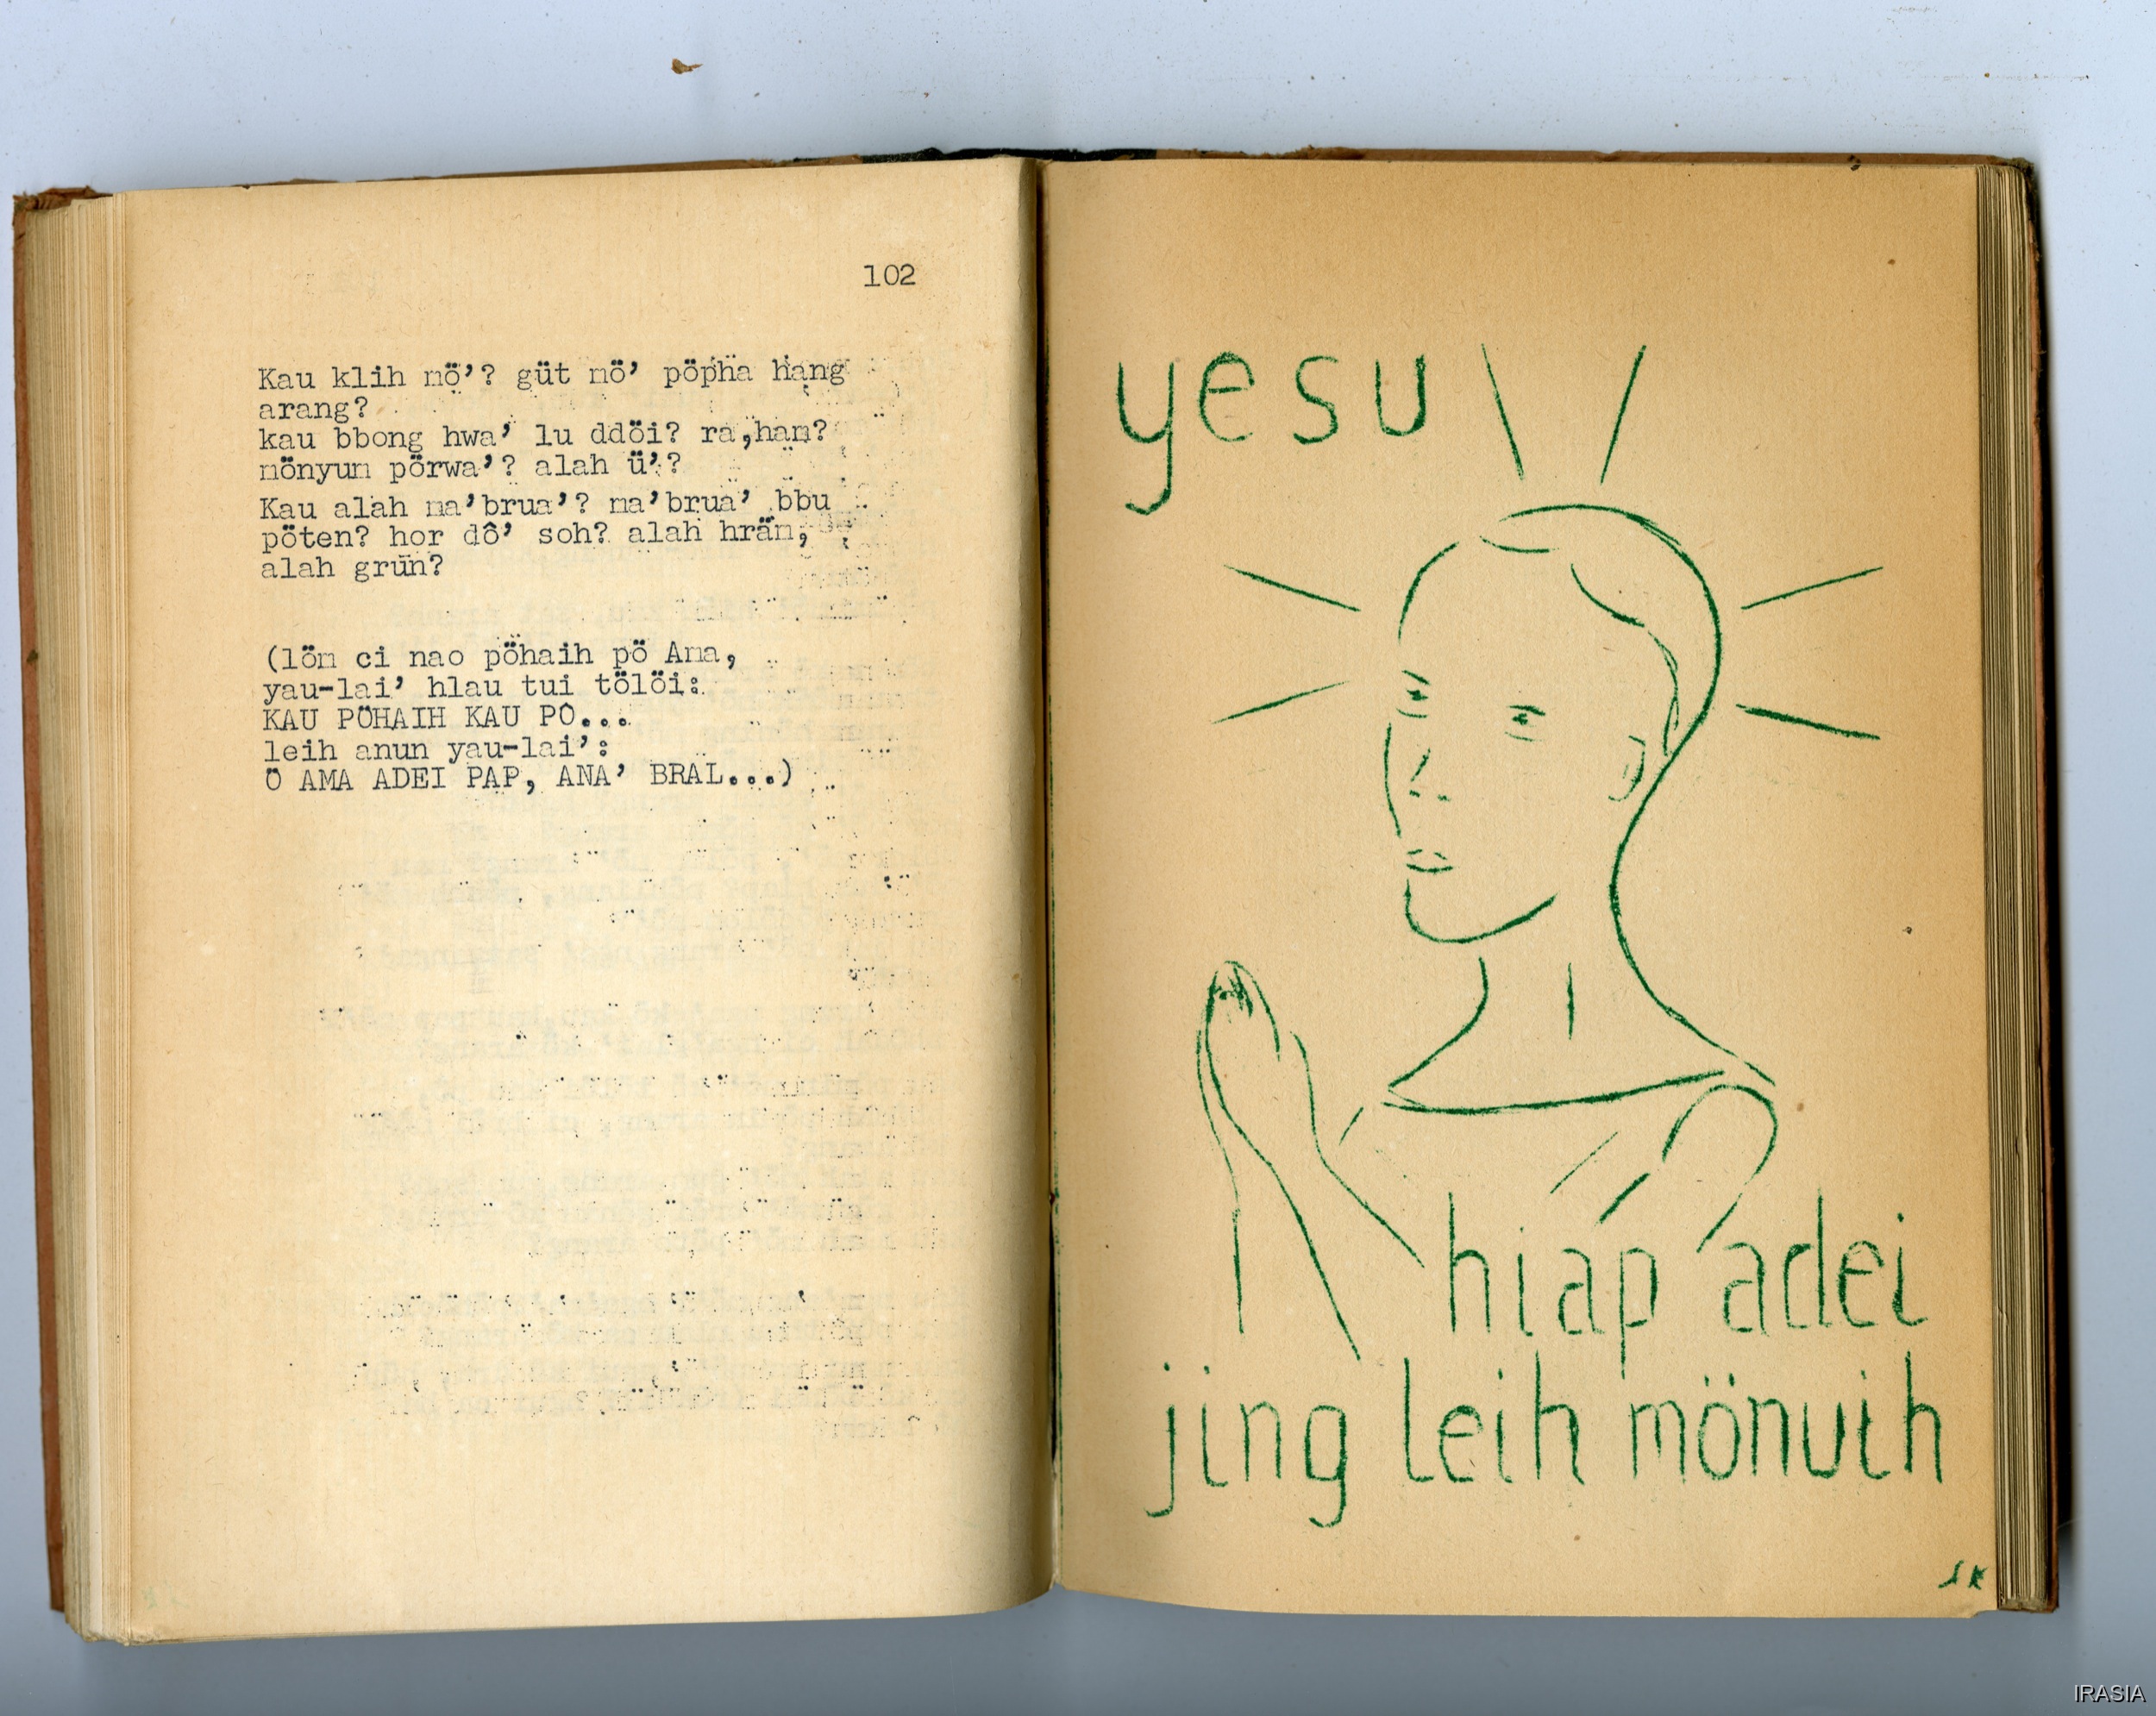 102
Kau klih nö’? güt nö’ pöpha hang
arang?
kau bbong hwa’ lu ddöi? ra,ham?
mönyum pörwa’? alah ü’?
Kau alah ma’brua’? ma’brua’ bbu
pöten? hor dô’ soh? alah hrăm,
alah grŭn?
(löm ci nao pöhaih pö Ama,
yau-lai’ hlau tui tölöi:
KAU PÖHAIH KAU PÔ...
leih anun yau-lai’:
Ö AMA ADEI PAP, ANA’ BRAL...)
yesu
hiap adei
jing leih mönuih
SK
IRASIA